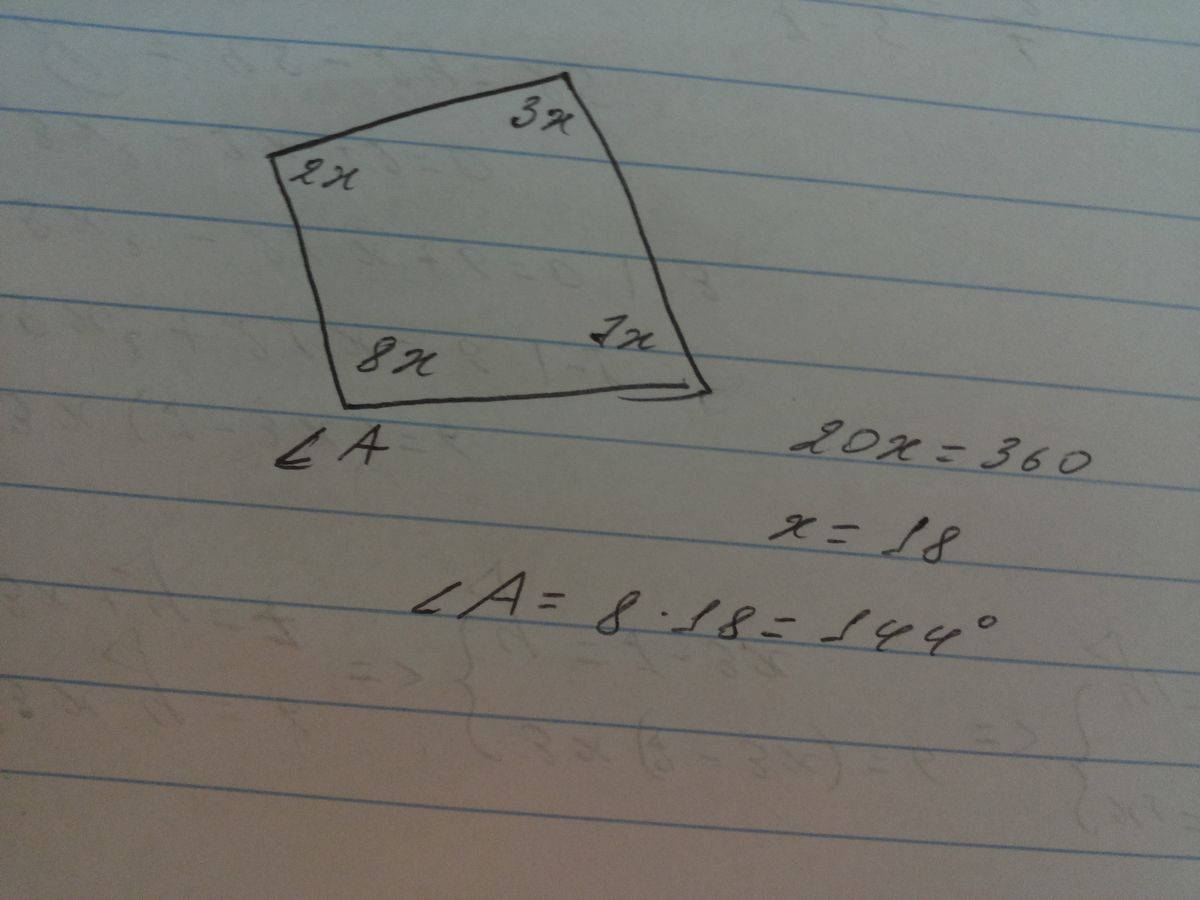 3x
2x
7x
8x
∠A
20x = 360
x = 18
∠A = 8 · 18 = 144°